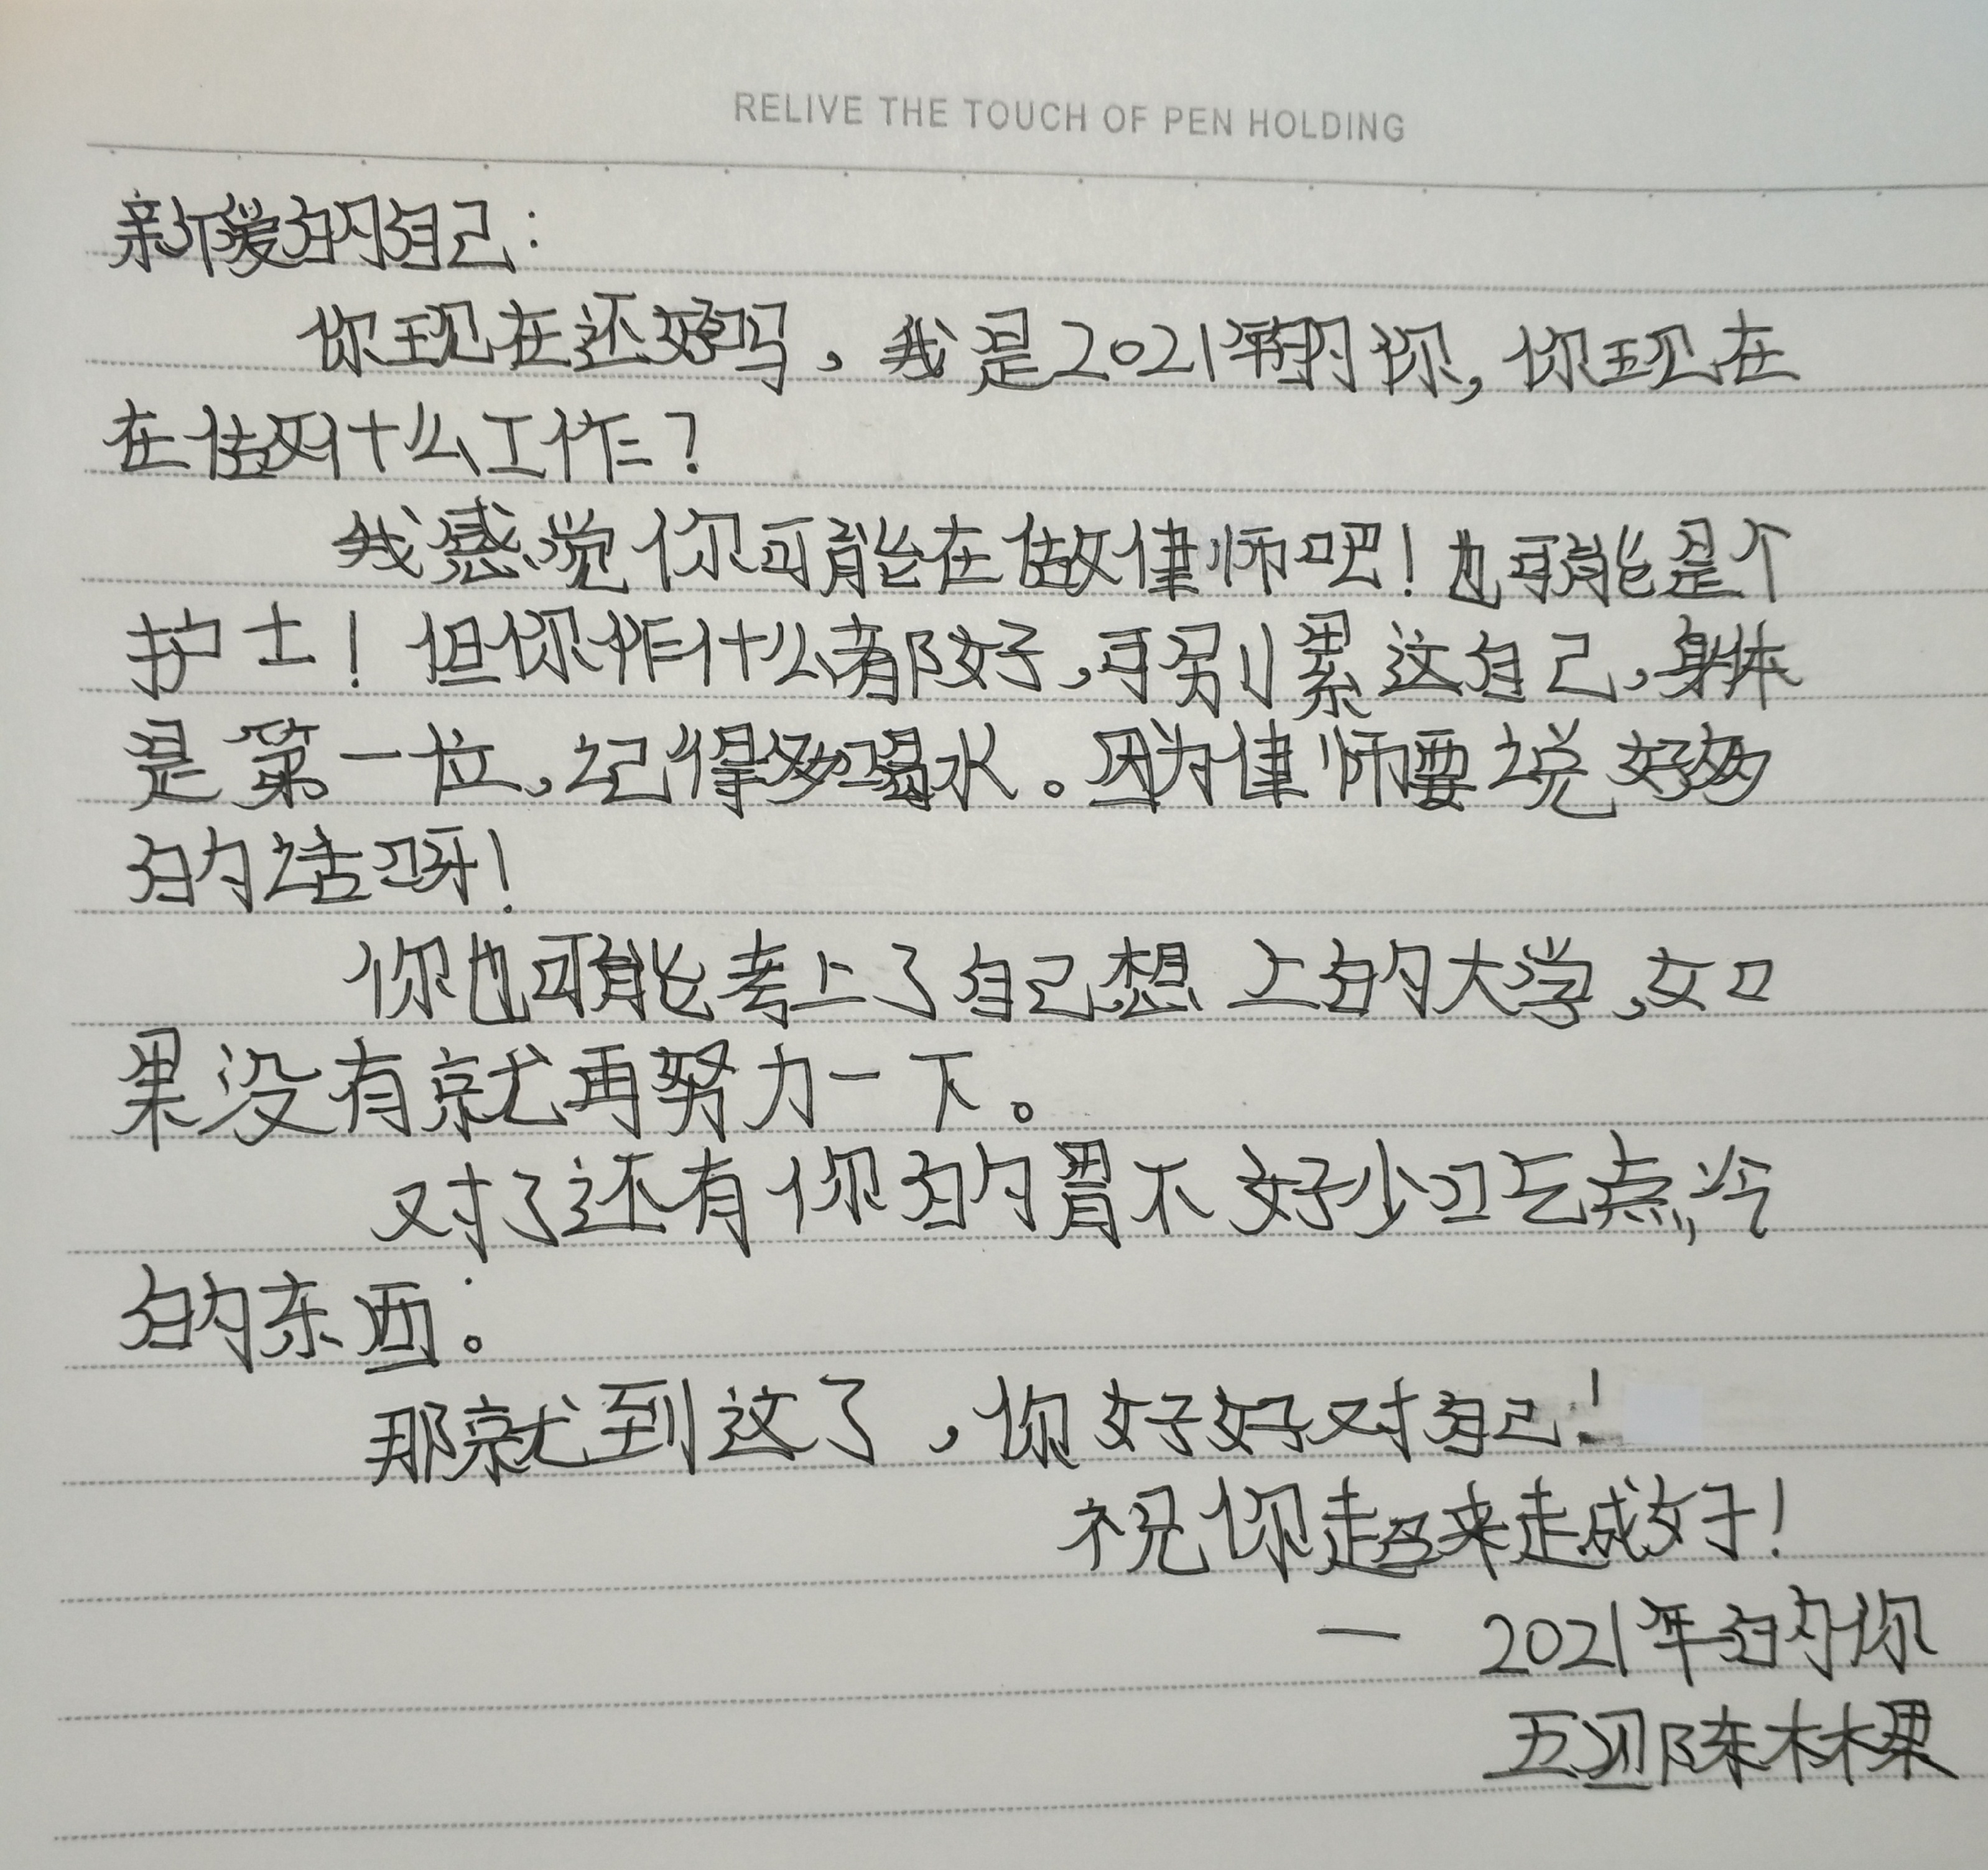 RELIVE THE TOUCH OF PEN HOLDING
亲爱的自己：
你现在还好吗，我是2021年的你，你现在
在做什么工作？
我感觉你可能在做律师吧！也可能是个
护士！但你作什么都好，可别累这自己，身体
是第一位，记得多喝水。因为律师要说好多
的话呀！
你也可能考上了自己想上的大学，如
果没有就再努力一下。
对了还有你的胃不好少吃点冷
的东西。
那就到这了，你好好对自己！
祝你越来走成好！
一 2021年的你
五 陈林果